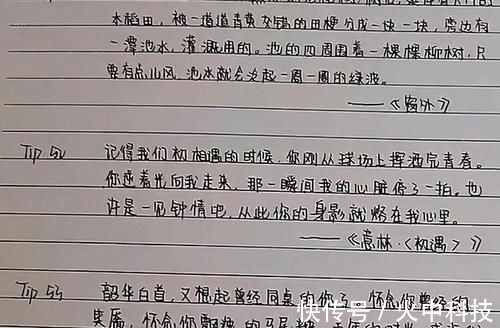 水稻田，被一道道青黄交错的田梗分成一块一块，旁边有
一潭池水，灌溉用的。池的四周围着一棵棵柳树，只
要有点儿风，池水就会边起一周一周的绿波。
——《窗外》
Tip 52 记得我们初相遇的时候，你刚从球场上挥洒完青春。
你逆着光向我走来，那一瞬间我的心脏停了一拍。也
许是一见钟情吧，从此你的身影就烙在我心里。
——《意林·<初遇>》
Tip 53 韶华白首，又想起曾经同桌的你了，怀念你曾经的
笑靥，怀念你飘逸的马尾辫
快传号／火中科技